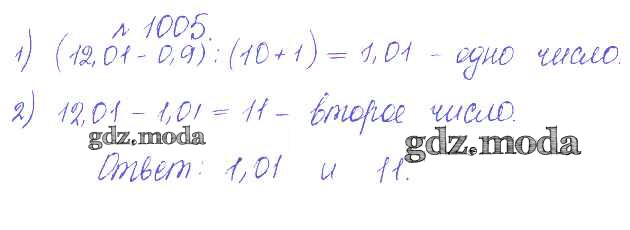 № 1005.
1) (12,01 - 0,9) : (10 + 1) = 1,01 - одно число.
2) 12,01 - 1,01 = 11 - второе число.
gdz.moda
gdz.moda
Ответ: 1,01 и 11.